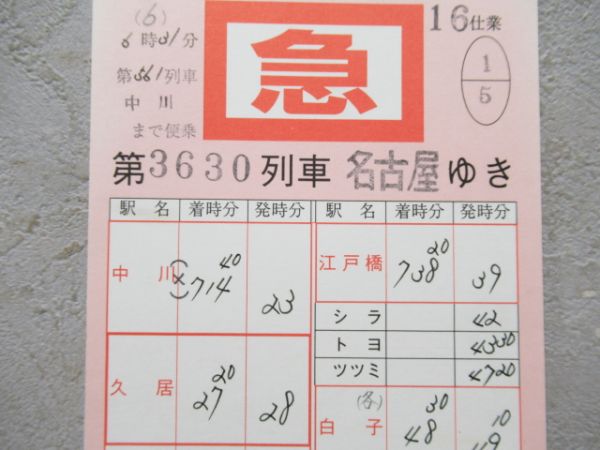 (6)
6時31分
第561列車
中川
まで便乗
急
16仕業
1
5
第3630列車 名古屋ゆき
駅名 着時分 発時分
中川 (×) 714 40 23
久居 27 20 28
駅名 着時分 発時分
江戸橋 738 20 39
シラ 42
トヨ 43 30
ツツミ 47 20
(各)
白子 48 30 49 10